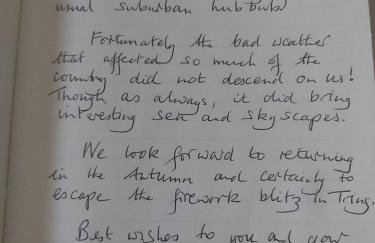 usual suburban hubbub
Fortunately the bad weather
that affected so much of the
country did not descend on us!
Though as always, it did bring
interesting sea and skyscapes.
We look forward to returning
in the Autumn and certainly to
escape the firework blitz in Tring.
Best wishes to you and